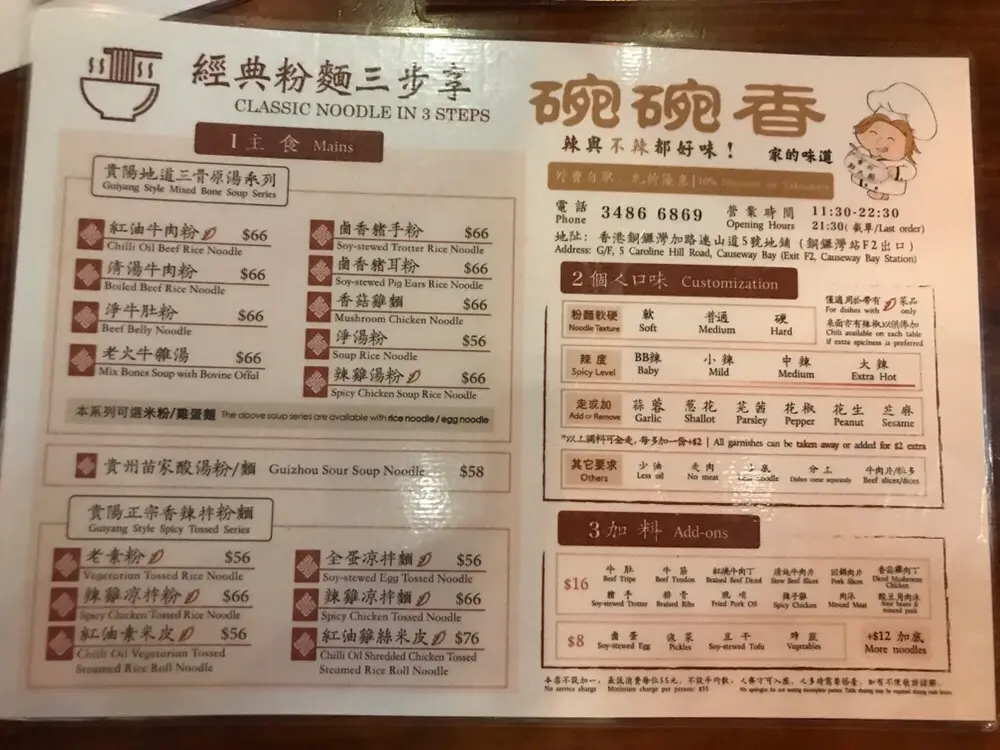 經典粉麵三步享
CLASSIC NOODLE IN 3 STEPS
1 主食 Mains
貴陽地道三骨原湯系列
Guiyang Style Mixed Bone Soup Series
紅油牛肉粉 $66
Chilli Oil Beef Rice Noodle
清湯牛肉粉 $66
Boiled Beef Rice Noodle
淨牛肚粉 $66
Beef Belly Noodle
老火牛雜湯 $66
Mix Bones Soup with Bovine Offal
鹵香豬手粉 $66
Soy-stewed Trotter Rice Noodle
鹵香豬耳粉 $66
Soy-stewed Pig Ears Rice Noodle
香菇雞麵 $66
Mushroom Chicken Noodle
淨湯粉 $56
Soup Rice Noodle
辣雞湯粉 $66
Spicy Chicken Soup Rice Noodle
本系列可選米粉/雞蛋麵 The above soup series are available with rice noodle / egg noodle
貴州苗家酸湯粉/麵 Guizhou Sour Soup Noodle $58
貴陽正宗香辣拌粉麵
Guiyang Style Spicy Tossed Series
老素粉 $56
Vegetarian Tossed Rice Noodle
辣雞凉拌粉 $66
Spicy Chicken Tossed Rice Noodle
紅油素米皮 $56
Chilli Oil Vegetarian Tossed
Steamed Rice Roll Noodle
全蛋凉拌麵 $56
Soy-stewed Egg Tossed Noodle
辣雞凉拌麵 $66
Spicy Chicken Tossed Noodle
紅油雞絲米皮 $76
Chilli Oil Shredded Chicken Tossed
Steamed Rice Roll Noodle
碗碗香
辣與不辣都好味！ 家的味道
外賣自取，九折優惠 | 10% Discount on Takeaway
電話 3486 6869 營業時間 11:30-22:30
Phone Opening Hours 21:30(截單/Last order)
地址: 香港銅鑼灣加路連山道5號地鋪 (銅鑼灣站F2出口)
Address: G/F, 5 Caroline Hill Road, Causeway Bay (Exit F2, Causeway Bay Station)
2 個人口味 Customization
粉麵軟硬 軟 普通 硬
Noodle Texture Soft Medium Hard
僅適用於帶有 菜品
For dishes with only
Chili available on each table
if extra spiciness is preferred
辣度 BB辣 小辣 中辣 大辣
Spicy Level Baby Mild Medium Extra Hot
走或加 蒜蓉 葱花 芫茜 花椒 花生 芝麻
Add or Remove Garlic Shallot Parsley Pepper Peanut Sesame
*以上調料可全走，每多加一份+$2 | All garnishes can be taken away or added for $2 extra
其它要求 少油 走肉 少底 分上 牛肉片/粒多
Others Less oil No meat Less noodle Dishes come separately Beef slices/dices
3 加料 Add-ons
$16
牛肚 牛筋 紅燒牛肉丁 清燉牛肉片 回鍋肉片 香菇雞肉丁
Beef Tripe Beef Tendon Braised Beef Diced Stew Beef Slices Pork Slices Diced Mushroom Chicken
豬手 排骨 脆哨 辣子雞 肉沫 酸豆角肉沫
Soy-stewed Trotter Braised Ribs Fried Pork Oil Spicy Chicken Minced Meat Sour beans & minced pork
$8
鹵蛋 泡菜 豆干 時蔬 +$12 加底
Soy-stewed Egg Pickles Soy-stewed Tofu Vegetables More noodles
No service charge Minimum charge per person: $55